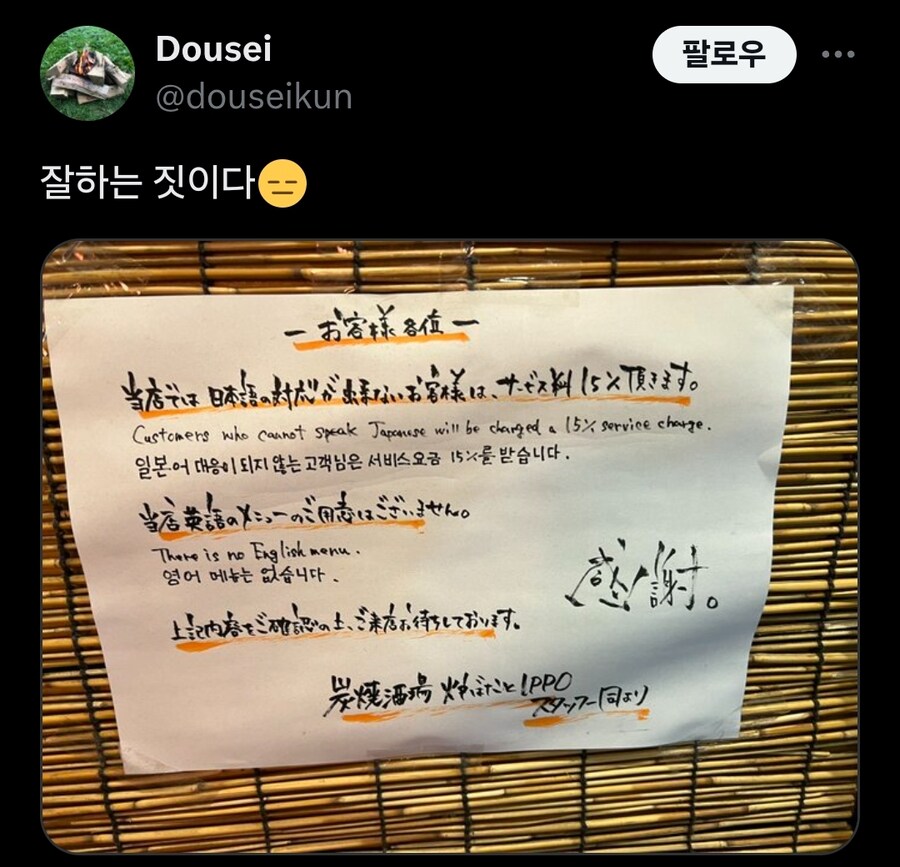 Dousei
팔로우
@douseikun
잘하는 짓이다😑
ー お客様各位 ー
当店では日本語の対応が出来ないお客様は、サービス料15%頂きます。
Customers who cannot speak Japanese will be charged a 15% service charge.
일본어 대응이 되지 않는 고객님은 서비스요금 15%를 받습니다.
当店英語のメニューのご用意はございません。
There is no English menu.
영어 메뉴는 없습니다.
感謝。
上記内容をご確認の上、ご来店お待ちしております。
炭焼酒場 炉ばたとIPPO
スタッフ一同より